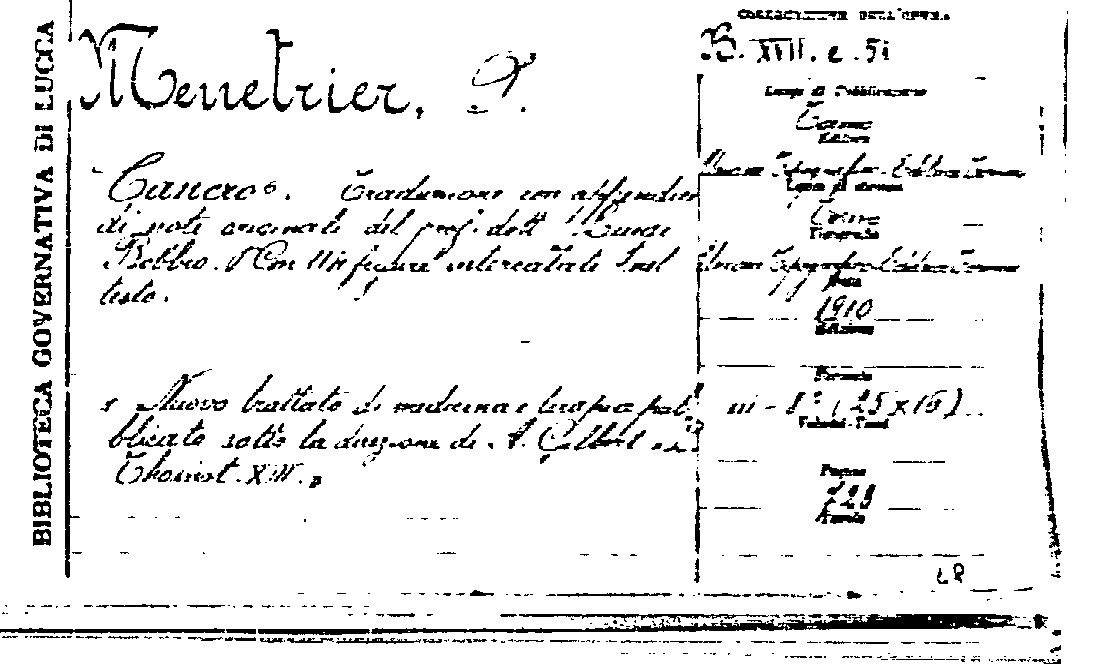 BIBLIOTECA GOVERNATIVA DI LUCCA
COLLOCAZIONE DELL'OPERA
B. XVII. e. 51
Menetrier, P.
Luogo di Pubblicazione
Torino
Editore
Unione Tipografico-Editrice Torinese
Luogo di stampa
Torino
Tipografia
Unione Tipografico-Editrice Torinese
Data
1910
Edizione
Cancro. Traduzione con appendice
di note originali del prof. dott. Luigi
Bobbio. Con 114 figure intercalate nel
testo.
Formato
in - 8° (25x16)
Volumi-Tomi
Pagine
728
Tavole
« Nuovo trattato di medicina e terapia pub-
blicato sotto la direzione di A. Gilbert e L.
Thoinot. XIII. »